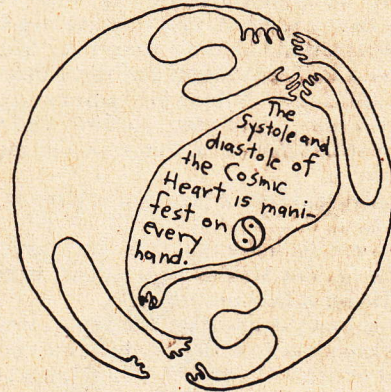 The
Systole and
diastole of
the Cosmic
Heart is mani-
fest on
every
hand!